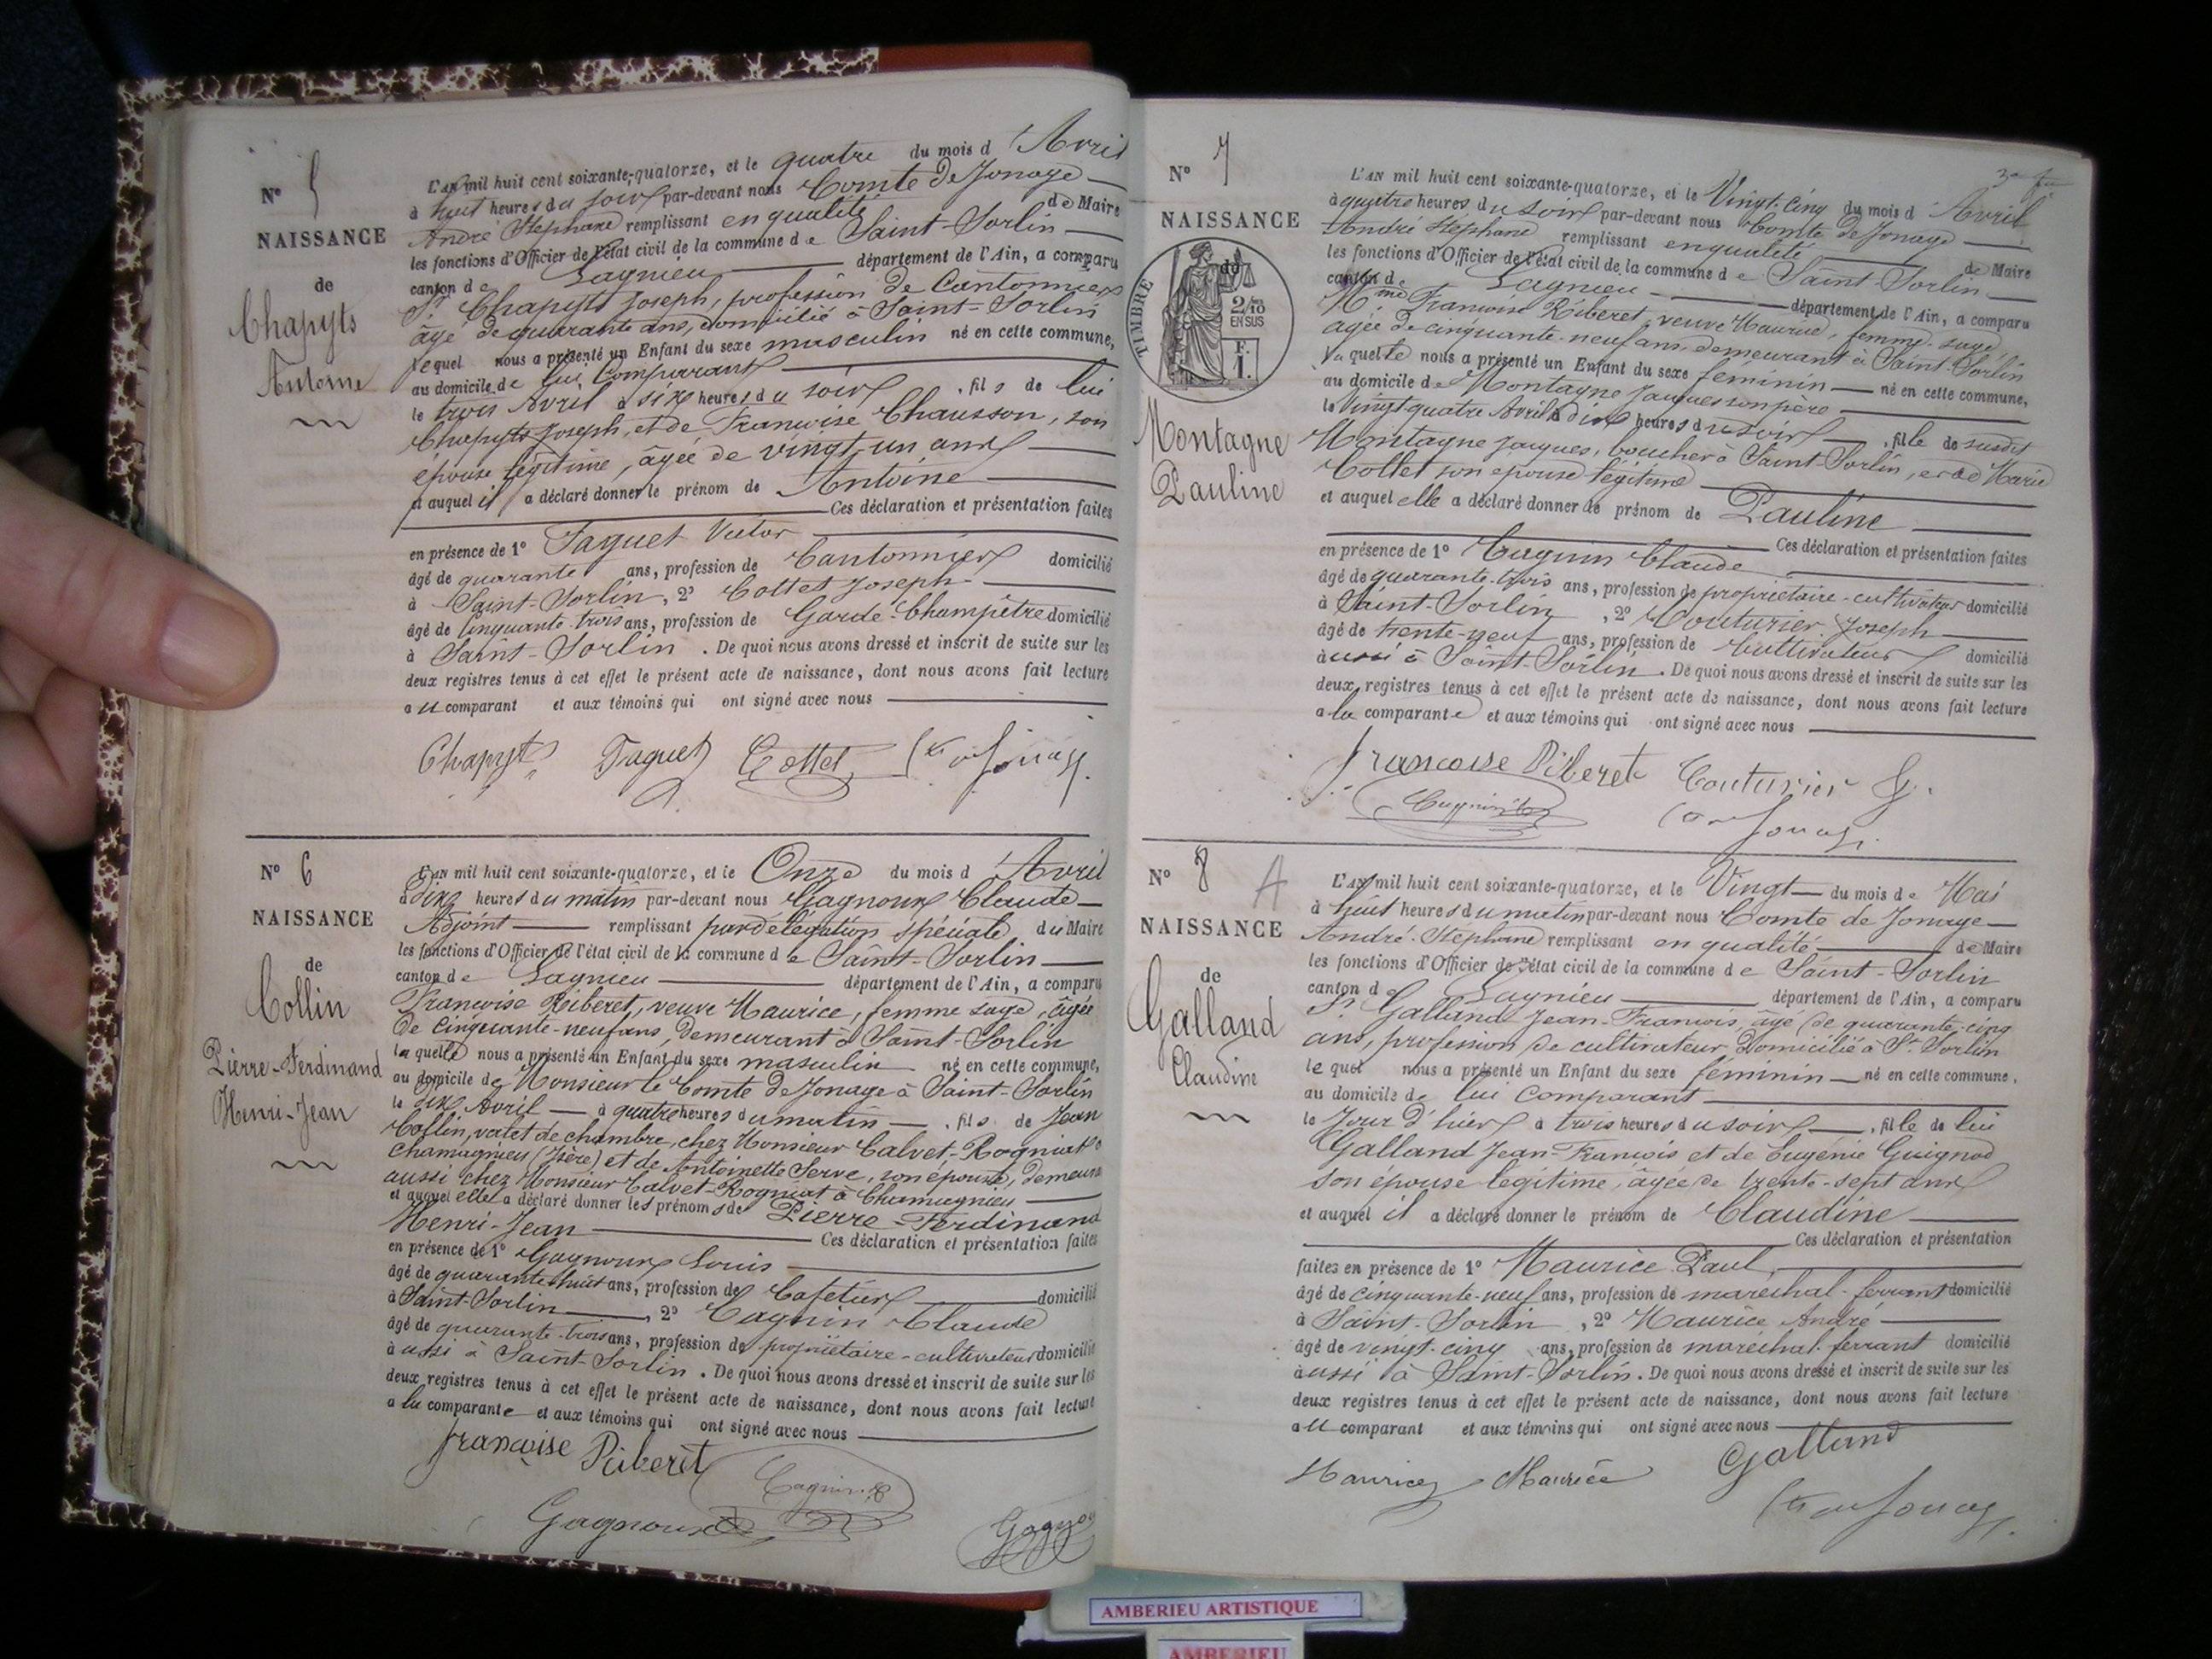 N° 5
NAISSANCE
de
Chapyts
Antoine
L'AN mil huit cent soixante-quatorze, et le quatre du mois d'Avril
à huit heures du soir par-devant nous Comte de Jonage
André Stephane remplissant en qualité de Maire
les fonctions d'Officier de l'état civil de la commune de Saint-Sorlin
canton de Lagnieu département de l'Ain, a comparu
Sr. Chapyts Joseph, profession de Cantonnier
âgé de quarante ans, domicilié à Saint-Sorlin
lequel nous a présenté un Enfant du sexe masculin né en cette commune,
au domicile de lui Comparant
le trois Avril à six heures du soir, fils de lui
Chapyts Joseph, et de Francoise Chausson, son
épouse légitime, âgée de vingt-un ans
et auquel il a déclaré donner le prénom de Antoine
Ces déclaration et présentation faites
en présence de 1° Taguet Victor
âgé de quarante ans, profession de Cantonnier domicilié
à Saint-Sorlin, 2° Cottet Joseph
âgé de Cinquante-trois ans, profession de Garde-Champêtre domicilié
à Saint-Sorlin. De quoi nous avons dressé et inscrit de suite sur les
deux registres tenus à cet effet le présent acte de naissance, dont nous avons fait lecture
au comparant et aux témoins qui ont signé avec nous
Chapyts Taguet Cottet Cte de Jonage
N° 6
NAISSANCE
de
Collin
Pierre-Ferdinand
Henri-Jean
L'AN mil huit cent soixante-quatorze, et le Onze du mois d'Avril
à Dix heures du matin par-devant nous Gagnoux Claude
Adjoint remplissant par délégation spéciale du Maire
les fonctions d'Officier de l'état civil de la commune de Saint-Sorlin
canton de Lagnieu département de l'Ain, a comparu
Francoise Riberet, veuve Maurice, femme sage, âgée
de Cinquante-neuf ans, demeurant à Saint-Sorlin
laquelle nous a présenté un Enfant du sexe masculin né en cette commune,
au domicile de Monsieur le Comte de Jonage à Saint-Sorlin
le dix Avril à quatre heures du matin, fils de Jean
Collin, valet de chambre, chez Monsieur Calvet-Rogniat à
Chamagnieu (Isère) et de Antoinette Serve, son épouse, demeurant
aussi chez Monsieur Calvet-Rogniat à Chamagnieu
et auquel elle a déclaré donner les prénoms de Pierre-Ferdinand
Henri-Jean Ces déclaration et présentation faites
en présence de 1° Gagnoux Louis
âgé de quarante-huit ans, profession de Cafetier domicilié
à Saint-Sorlin, 2° Cagnin Claude
âgé de quarante-trois ans, profession de propriétaire-cultivateur domicilié
à aussi à Saint-Sorlin. De quoi nous avons dressé et inscrit de suite sur les
deux registres tenus à cet effet le présent acte de naissance, dont nous avons fait lecture
a la comparante et aux témoins qui ont signé avec nous
francoise Riberet Cagnin
Gagnoux Gagnoux
N° 7
NAISSANCE
TIMBRE
de
2/10
EN SUS
F.
1.
Montagne
Pauline
L'AN mil huit cent soixante-quatorze, et le Vingt-Cinq du mois d'Avril
à quatre heures du soir par-devant nous Comte de Jonage
André Stéphane remplissant en qualité de Maire
les fonctions d'Officier de l'état civil de la commune de Saint Sorlin
canton de Lagnieu département de l'Ain, a comparu
Mme Francoise Riberet, veuve Maurice, femme-sage,
agée de cinquante-neuf ans, demeurant à Saint-Sorlin
laquelle nous a présenté un Enfant du sexe féminin né en cette commune,
au domicile de Montagne Jacques son père
le Vingt quatre Avril à dix heures du soir, fille de susdit
Montagne Jacques, boucher à Saint-Sorlin, et de Marie
Collet son épouse légitime
et auquel elle a déclaré donner le prénom de Pauline
Ces déclaration et présentation faites
en présence de 1° Cagnin Claude
âgé de quarante-trois ans, profession de propriétaire-cultivateur domicilié
à Saint-Sorlin, 2° Couturier Joseph
âgé de trente-neuf ans, profession de Cultivateur domicilié
à aussi à Saint-Sorlin. De quoi nous avons dressé et inscrit de suite sur les
deux registres tenus à cet effet le présent acte de naissance, dont nous avons fait lecture
a la comparante et aux témoins qui ont signé avec nous
francoise Riberet Couturier J.
Cagnin Cte de Jonage
N° 8 A
NAISSANCE
de
Galland
Claudine
L'AN mil huit cent soixante-quatorze, et le Vingt du mois de Mai
à huit heures du matin par-devant nous Comte de Jonage
André-Stephane remplissant en qualité de Maire
les fonctions d'Officier de l'état civil de la commune de Saint-Sorlin
canton de Lagnieu département de l'Ain, a comparu
Sr. Galland Jean-Francois, âgé de quarante-cinq
ans, profession de cultivateur Domicilié à St-Sorlin
lequel nous a présenté un Enfant du sexe féminin né en cette commune,
au domicile de lui Comparant
le Jour d'hier à trois heures du soir, fille de lui
Galland Jean-Francois et de Eugénie Guignod
son épouse légitime, âgée de trente-sept ans
et auquel il a déclaré donner le prénom de Claudine
Ces déclaration et présentation
faites en présence de 1° Maurice Paul,
âgé de cinquante-neuf ans, profession de maréchal-ferrant domicilié
à Saint-Sorlin, 2° Maurice André
âgé de vingt-cinq ans, profession de maréchal-ferrant domicilié
à aussi à Saint-Sorlin. De quoi nous avons dressé et inscrit de suite sur les
deux registres tenus à cet effet le présent acte de naissance, dont nous avons fait lecture
au comparant et aux témoins qui ont signé avec nous
Maurice Maurice Galland
Cte de Jonage
AMBERIEU ARTISTIQUE
AMBERIEU